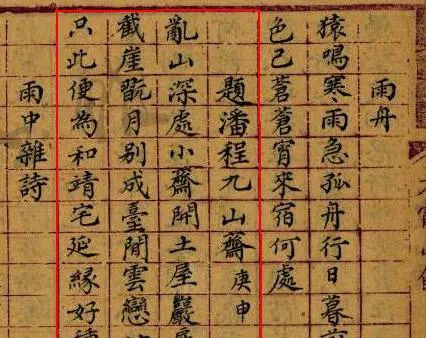 雨舟
猿鳴寒雨急孤舟行日暮
色已蒼蒼宵來宿何處
題潘程九山齋庚申
亂山深處小齋開土屋嚴
截崖翫月别成臺閒雲戀
只此便為和靖宅延緣好
雨中雜詩